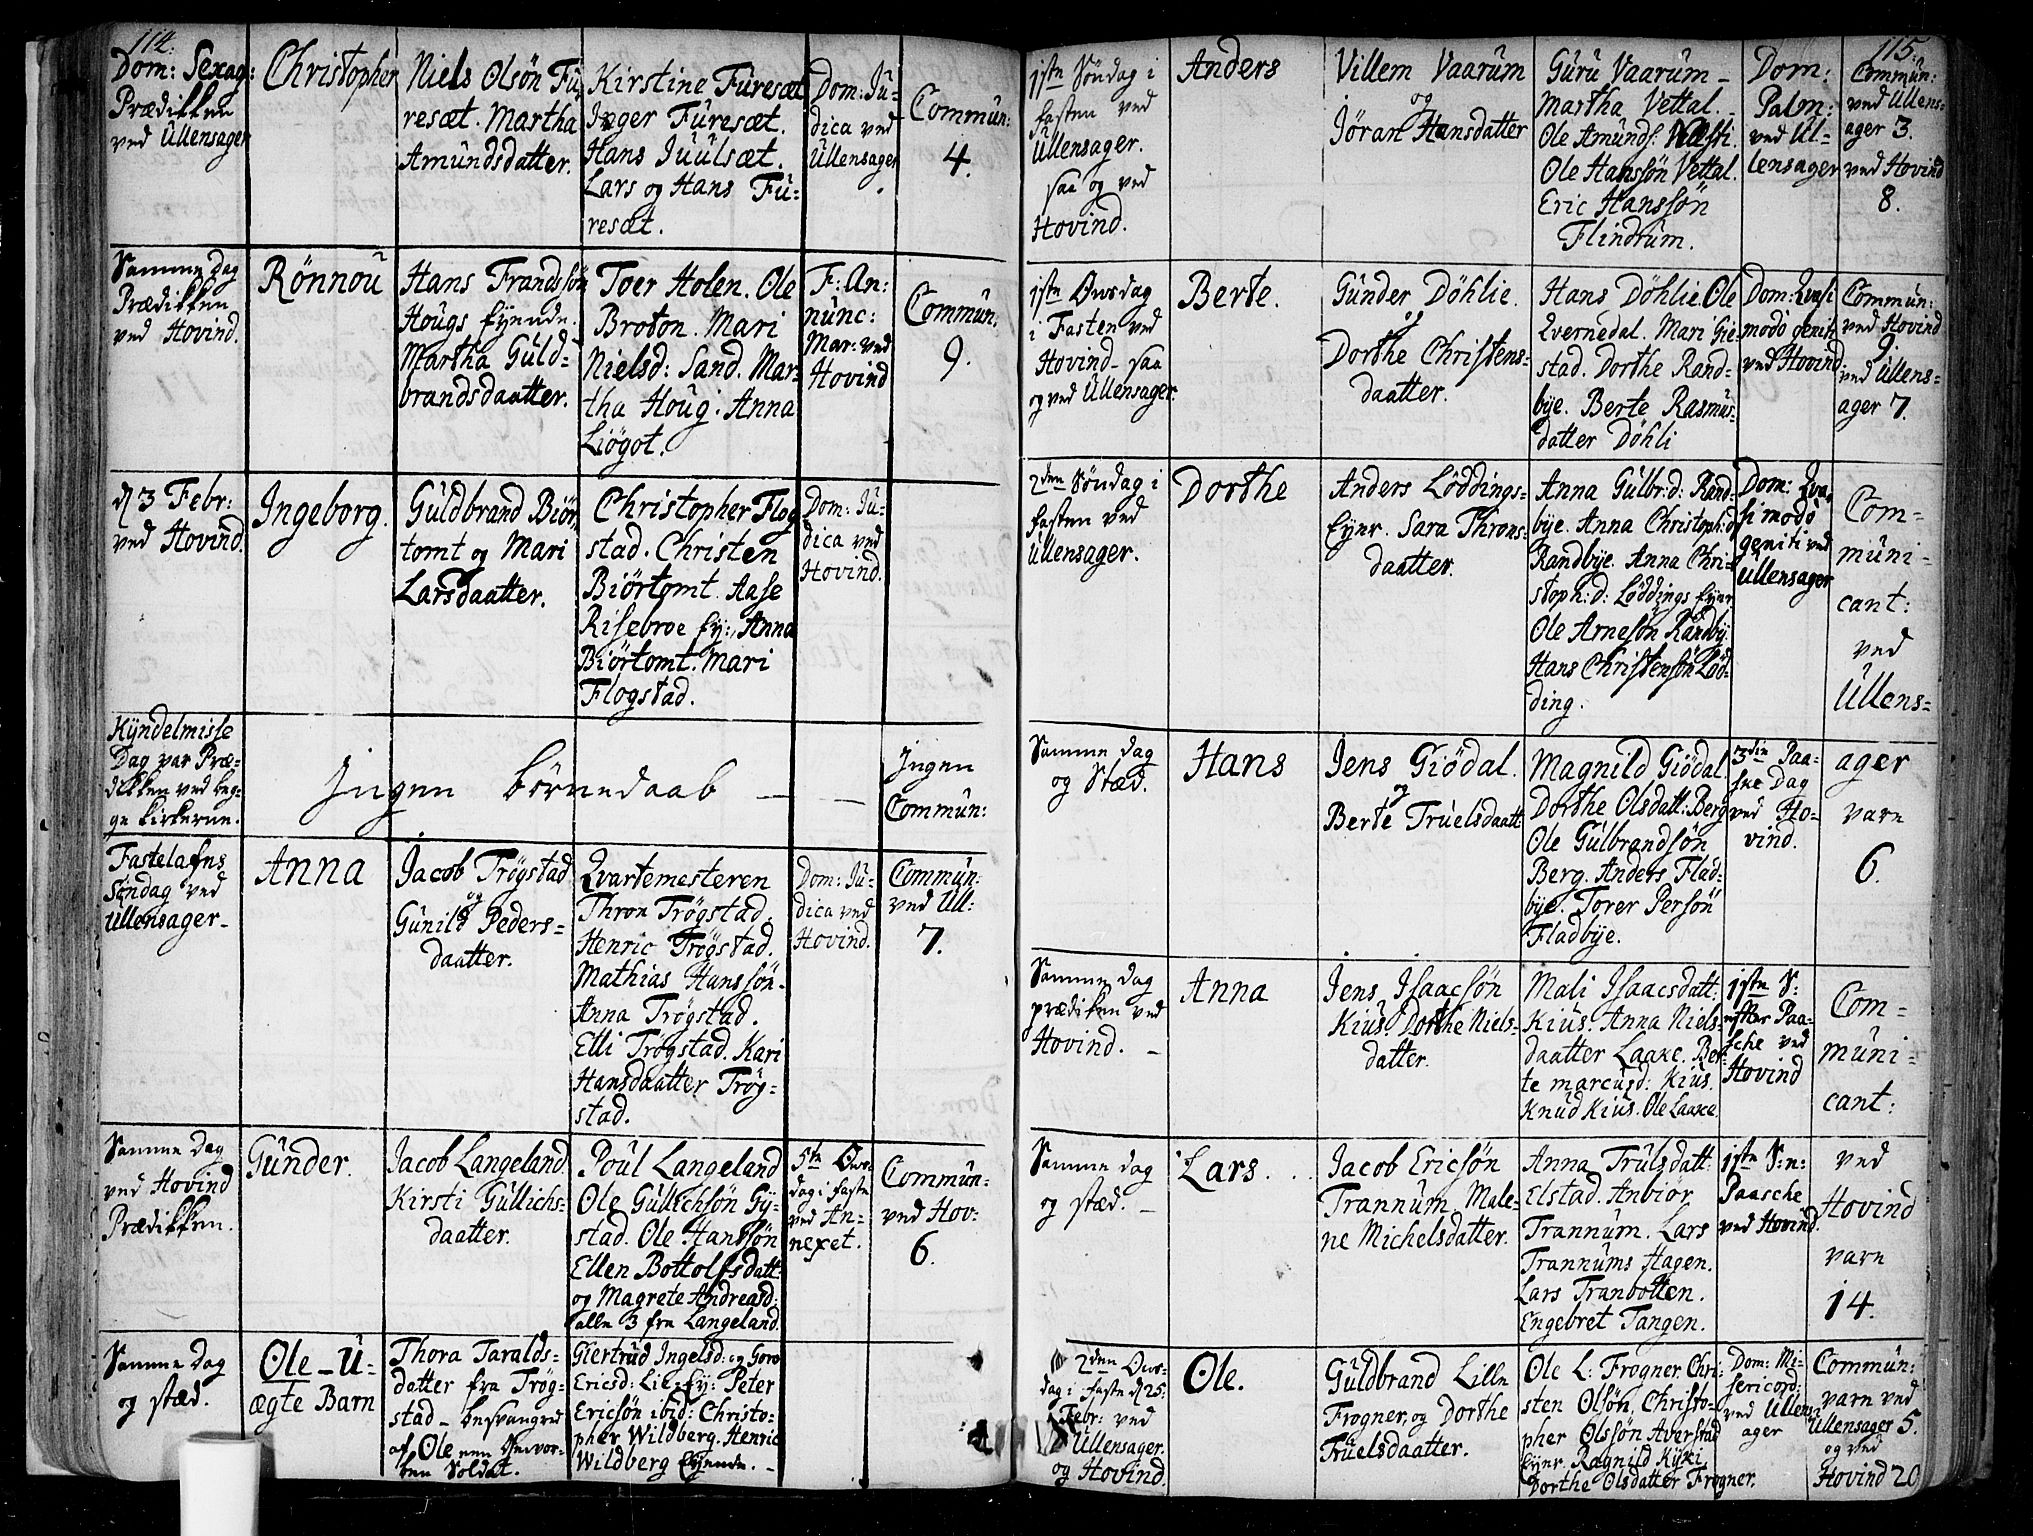 114.
Dom: Sexag:
Prædikken
ved Ullensager
Christopher
Niels Olsön Fu-
resæt. Martha
Amundsdatter.
Kirstine Furesæt
Inger Furesæt.
Hans Juulsæt.
Lars og Hans Fu-
resæt.
Dom: Ju-
dica ved
Ullensager
Commun:
4.
Samme Dag
Prædikken
ved Hovind.
Rönnou
Hans Frandssön
Hougs Eyende.
Martha Guld-
brandsdaatter.
Toer Holen. Ole
Broton. Mari
Nielsd: Sand. Mar-
tha Houg. Anna
Liögot.
F: An:
nunc:
Mar: ved
Hovind
Commun:
9.
d 3 Febr:
ved Hovind.
Ingeborg.
Guldbrand Biör-
tomt og Mari
Larsdaatter.
Christopher Flog-
stad. Christen
Biörtomt. Aase
Risebroe Ey:, Anna
Biörtomt. Mari
Flogstad.
Dom: Ju-
dica ved
Hovind.
Kyndelmisse
Dag var Præ-
dikken ved beg-
ge kirkerne.
Ingen börnedaab
Ingen
Commun:
Fastelafns
Söndag ved
Ullensager
Anna
Jacob Trögstad
og
Gunild Peders-
daatter.
Qvartemesteren
Thron Trögstad.
Henric Trögstad.
Mathias Hanssön.
Anna Trögstad.
Elli Trögstad. Kari
Hansdaatter Trög-
stad.
Dom: Ju-
dica ved
Hovind.
Commun:
ved Ull:
7.
Samme Dag
ved Hovind
Prædikken.
Gunder.
Jacob Langeland
Kirsti Gullichs-
daatter.
Poul Langeland
Ole Gullichsön Gy-
stad. Ole Hanssön
Ellen Bottolfsdatt:
og Magrete Andreasd:
alle 3 fra Langeland.
5te Ons-
dag i faste
ved An-
nexet.
Commun:
ved Hov:
6.
Samme Dag
og stæd.
Ole - U-
ægte Barn
Thora Taralds-
datter fra Trög-
stad - besvangred
af Ole een Gevor-
ben Soldat.
Giertrud Ingelsd: og Goro
Ericsd: Lie Ey: Peter
Ericsön ibid: Christo-
pher Wildberg. Henric
Wildberg Eyende.
115.
1ste Söndag i
fasten ved
Ullensager.
saa og ved
Hovind.
Anders
Villem Vaarum
og
Jöran Hansdatter
Guru Vaarum
Martha Vettal.
Ole Amunds:
Ole Hanssön Vettal.
Eric Hanssön
Flindrum.
Dom:
Palm:
ved Ul-
lensager
Commun:
ved Ullens-
ager 3.
ved Hovind
8.
1ste Onsdag
i Fasten ved
Hovind - saa
og ved Ullensager.
Berte.
Gunder Döhlie.
og
Dorthe Christens-
daatter.
Hans Döhlie. Ole
Qvernedal. Mari Gie-
stad. Dorthe Rand-
bye. Berte Rasmus-
datter Döhli
Dom: Qvasi
modo genit:
ved Hovind
Commun:
ved Hovind
9.
ved Ullens-
ager 7.
2den Söndag i
fasten ved
Ullensager.
Dorthe
Anders Löddings-
Eyer. Sara Throns-
daatter.
Anna Gulbr:d: Rand-
bye. Anna Christoph:d:
Randbye. Anna Chri-
stoph:d: Löddings Eyer
Ole Arnesön Randby.
Hans Christensön Löd-
ding.
Dom: Qva-
si modo
geniti ved
Ullensager
Com-
muni-
cant:
ved
Ullens-
Samme Dag
og Stæd.
Hans
Jens Giödal.
og
Berte Truelsdaatt
Magnild Giödal.
Dorthe Olsdatt: Berg
Ole Gulbrandsön
Berg. Anders Flad-
bye. Torer Persön
Fladbye.
3die Paa-
ske Dag
ved Ho-
vind.
ager
vare
6.
Samme Dag
prædiken ved
Hovind.
Anna
Jens Isaacsön
Kius. Dorthe Niels-
datter.
Mali Isaacsdatt:
Kius. Anna Niels-
daatter Laake. Ber-
te Marcusd: Kius.
Knud Kius. Ole Laake
1ste S:
efter Paa-
sche ved
Hovind
Com-
muni-
cant:
Samme Dag
og stæd.
Lars.
Jacob Ericsön
Trannum. Male-
ne Michelsdatter.
Anna Trulsdatt:
Elstad. Anbiör
Trannum. Lars
Trannums Hagen.
Lars Tranbotten.
Engebret Tangen.
1ste S:n:
Paasche
ved Hovind.
ved
Hovind
vare
14.
2den Ons-
dag i faste d 25
Febr: ved
Ullensager.
og Hovind.
Ole.
Guldbrand Lille
Frogner, og Dorthe
Truelsdaatter.
Ole L: Frogner. Chri-
sten Olsön, Christo-
pher Olssön Averstad
Eyer. Ragnild Kyxi
Dorthe Olsdatter Frogner.
Dom: Mi-
sericord:
ved Ullens-
ager
Commun:
vare ved
Ullensager 5.
og ved
Hovind 20